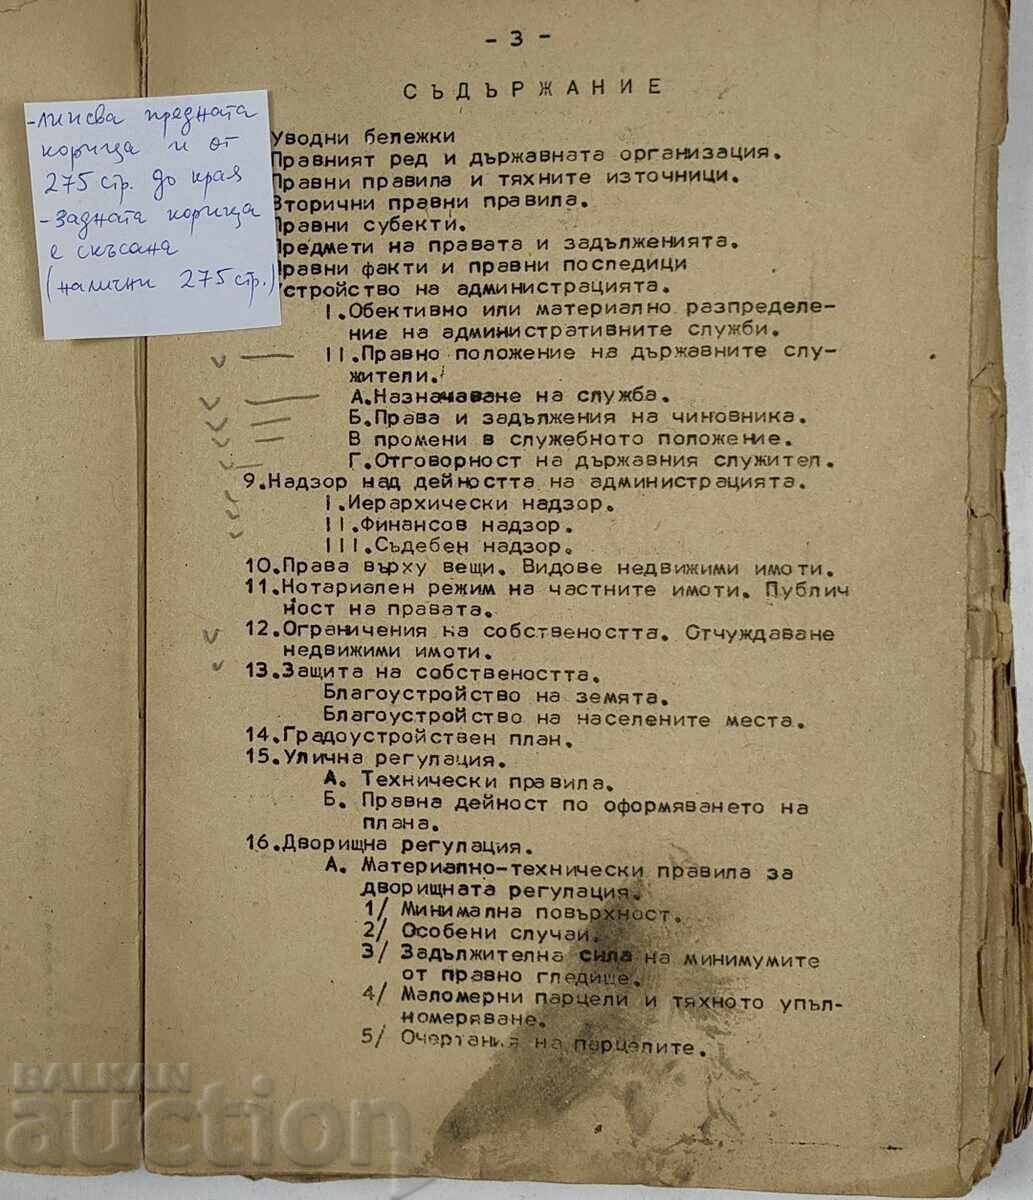 - 3 -
СЪДЪРЖАНИЕ
-липсва предната
корица и от
275 стр. до края
-задната корица
е скъсана
(налични 275 стр.)
Уводни бележки
Правният ред и държавната организация.
Правни правила и тяхните източници.
Вторични правни правила.
Правни субекти.
Предмети на правата и задълженията.
Правни факти и правни последици
Устройство на администрацията.
I.Обективно или материално разпределе-
ние на административните служби.
II.Правно положение на държавните слу-
жители.
А.Назначаване на служба.
Б.Права и задължения на чиновника.
В промени в служебното положение.
Г.Отговорност на държавния служител.
9.Надзор над дейността на администрацията.
I.Иерархически надзор.
II.Финансов надзор.
III.Съдебен надзор.
10.Права върху вещи. Видове недвижими имоти.
11.Нотариален режим на частните имоти. Публич
ност на правата.
12.Ограничения на собствеността. Отчуждаване
недвижими имоти.
13.Защита на собствеността.
Благоустройство на земята.
Благоустройство на населените места.
14.Градоустройствен план.
15.Улична регулация.
А. Технически правила.
Б. Правна дейност по оформяването на
плана.
16.Дворищна регулация.
А. Материално-технически правила за
дворищната регулация.
1/ Минимална повърхност.
2/ Особени случаи.
3/ Задължителна сила на минимумите
от правно гледище.
4/ Маломерни парцели и тяхното упъл-
номеряване.
5/ Очертания на парцелите.
BALKAN
auction